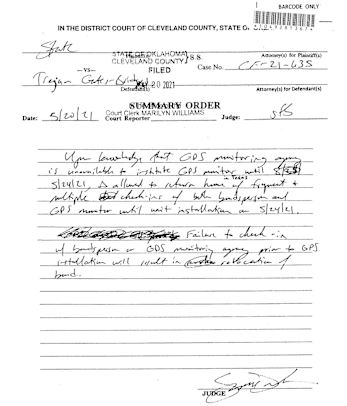 BARCODE ONLY
IN THE DISTRICT COURT OF CLEVELAND COUNTY, STATE O
State
STATE OF OKLAHOMA
CLEVELAND COUNTY S.S.
Attorney(s) for Plaintiff(s)
-vs-
FILED
Case No. CF-21-635
Trejan
20 2021
Defendant(s)
Attorney(s) for Defendant(s)
SUMMARY ORDER
Court Clerk MARILYN WILLIAMS
Date: 5/20/21
Court Reporter
Judge:
Upon knowledge that GPS monitoring agency
is unavailable to institute GPS monitor until
5/24/21, Δ allowed to return home in Texas w/ frequent &
multiple check-ins w/ both bondsperson and
GPS monitor until unit installation on 5/24/21.
Failure to check-in
w/ bondsperson or GPS monitoring agency prior to GPS
installation will result in revocation of
bond.
JUDGE